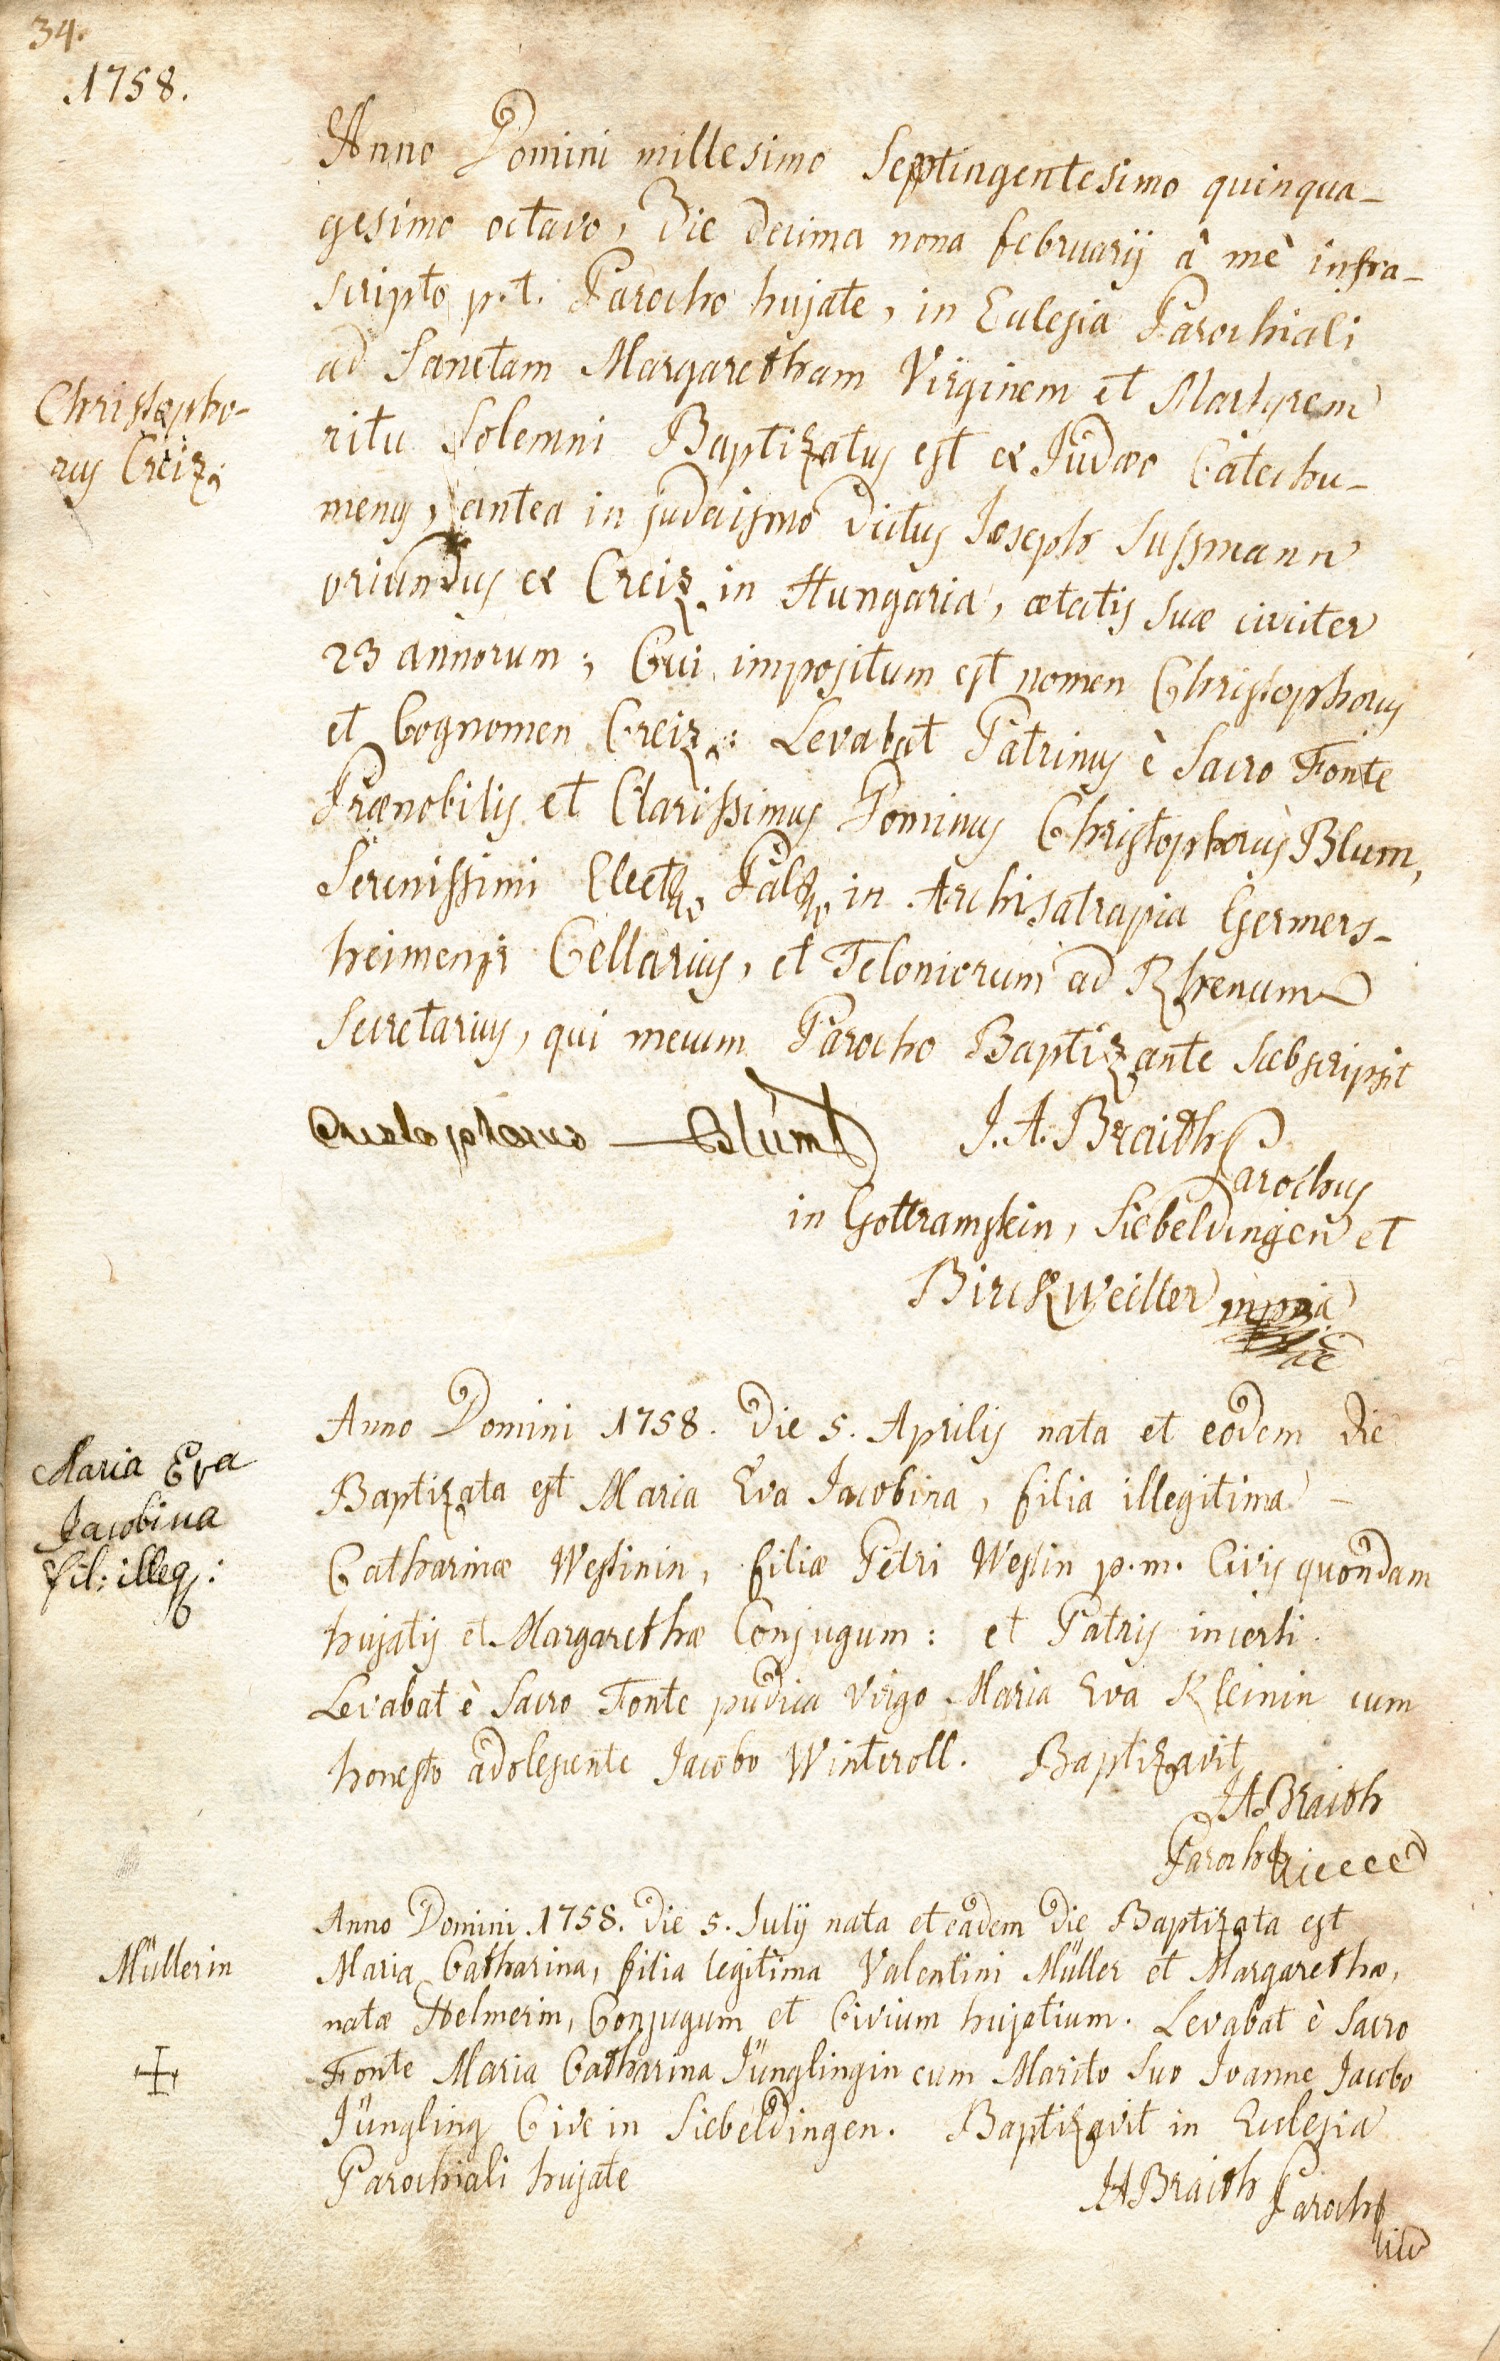 34.
1758.
Anno Domini millesimo Septingentesimo quinqua-
gesimo octavo, Die decima nona februarij à mè infra-
scripto p.t. Parocho hujate, in Eclesia Parochiali
ad Sanctam Margaretham Virginem et Martyrem
Christopho-
rus Creiz.
ritu Solemni Baptizatus est ex Judæo Catechu-
menus, antea in judaismo dictus Joseph Sussmann
oriundus ex Creiz in Hungaria, ætatis suæ circiter
23 annorum; Cui impositum est nomen Christophorus
et Cognomen Creiz: Levabat Patrinus è Sacro Fonte
Prænobilis et Clarissimus Dominus Christophorus Blum,
Serenissimi Elect. Pal. in Archisatrapia Germers-
heimensi Cellarius, et Teloniorum ad Rhenum
Secretarius, qui mecum Parocho Baptizante subscripsit
Christophorus Blum
J. A. Braith Parochus
in Gottramstein, Siebeldingen et
Birckweiller mppria
Maria Eva
Jacobina
fil: illeg:
Anno Domini 1758. Die 5. Aprilis nata et eodem die
Baptizata est Maria Eva Jacobina, filia illegitima
Catharinæ Westinin, filiæ Petri Westin p.m. Civis quondam
hujatis et Margarethæ Conjugum: et Patris incerti.
Levabat è Sacro Fonte pudica virgo Maria Eva Kleinin cum
honesto adolescente Jacobo Winteroll. Baptizavit
JABraith
Paroch
Müllerin
Anno Domini 1758. Die 5. Julij nata et eâdem die Baptizata est
Maria Catharina, filia legitima Valentini Müller et Margarethæ,
natæ Helmerin, Conjugum et Civium hujatium. Levabat è Sacro
Fonte Maria Catharina Jünglingin cum Marito suo Joanne Jacobo
Jüngling Cive in Siebeldingen. Baptizavit in Eclesia
Parochiali hujate
JABraith Paroch